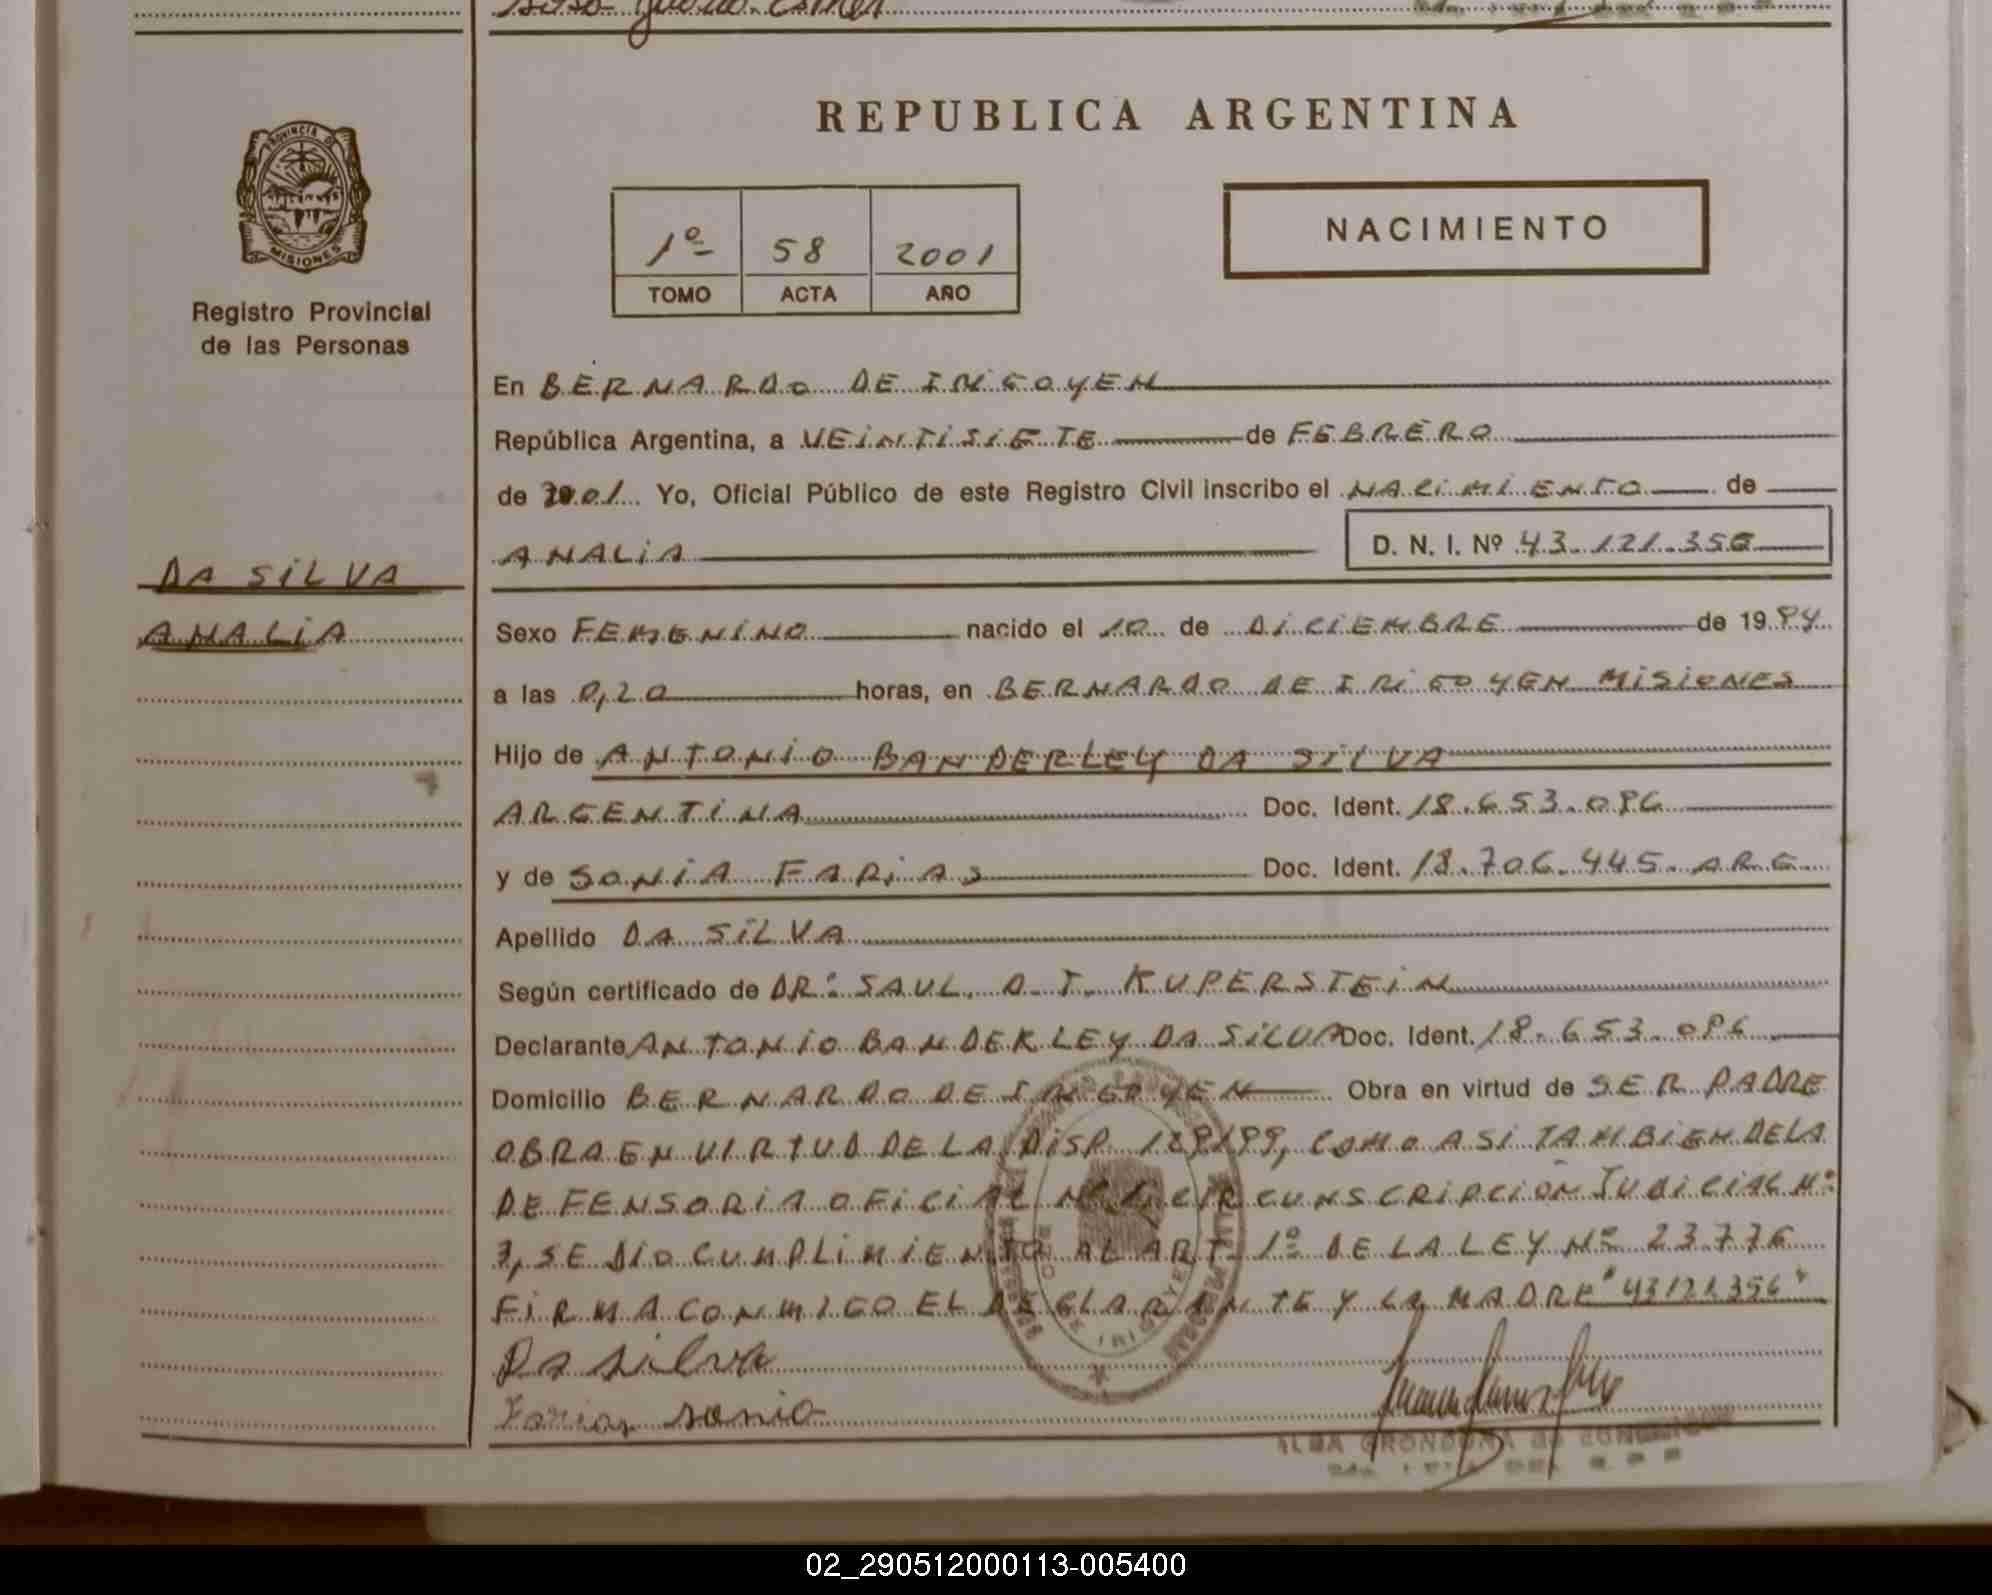 REPUBLICA ARGENTINA
PROVINCIA DE
MISIONES
Registro Provincial
de las Personas
1º 58 2001
TOMO ACTA AÑO
NACIMIENTO
En BERNARDO DE IRIGOYEN
República Argentina, a VEINTISIETE de FEBRERO
de 2001 Yo, Oficial Público de este Registro Civil inscribo el NACIMIENTO de
ANALIA D. N. I. Nº 43.121.356
DA SILVA
ANALIA
Sexo FEMENINO nacido el 10 de DICIEMBRE de 19
a las 0,20 horas, en BERNARDO DE IRIGOYEN MISIONES
Hijo de ANTONIO BANDERLEY DA SILVA
ARGENTINA Doc. Ident. 18.653.086
y de SONIA FARIAS Doc. Ident. 18.706.445 ARG
Apellido DA SILVA
Según certificado de DR: SAUL. O. T. KUPERSTEIN
Declarante ANTONIO BANDERLEY DA SILVA Doc. Ident. 18.653.086
Domicilio BERNARDO DE IRIGOYEN Obra en virtud de SER PADRE
OBRA EN VIRTUD DE LA DISP. COMO ASI TAMBIEN DE LA
DEFENSORIA OFICIAL CIRCUNSCRIPCION JUDICIAL Nº
7, SE DIO CUMPLIMIENTO AL ART. 1º DE LA LEY Nº 23.776
FIRMA CONMIGO EL DECLARANTE Y LA MADRE "43121356"
Da Silva
Farias Sonia
ALBA GRONDONA de
02_290512000113-005400